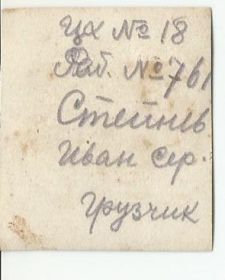 Цх № 18
Таб. № 761
Стейнев
Иван Сер.
грузчик